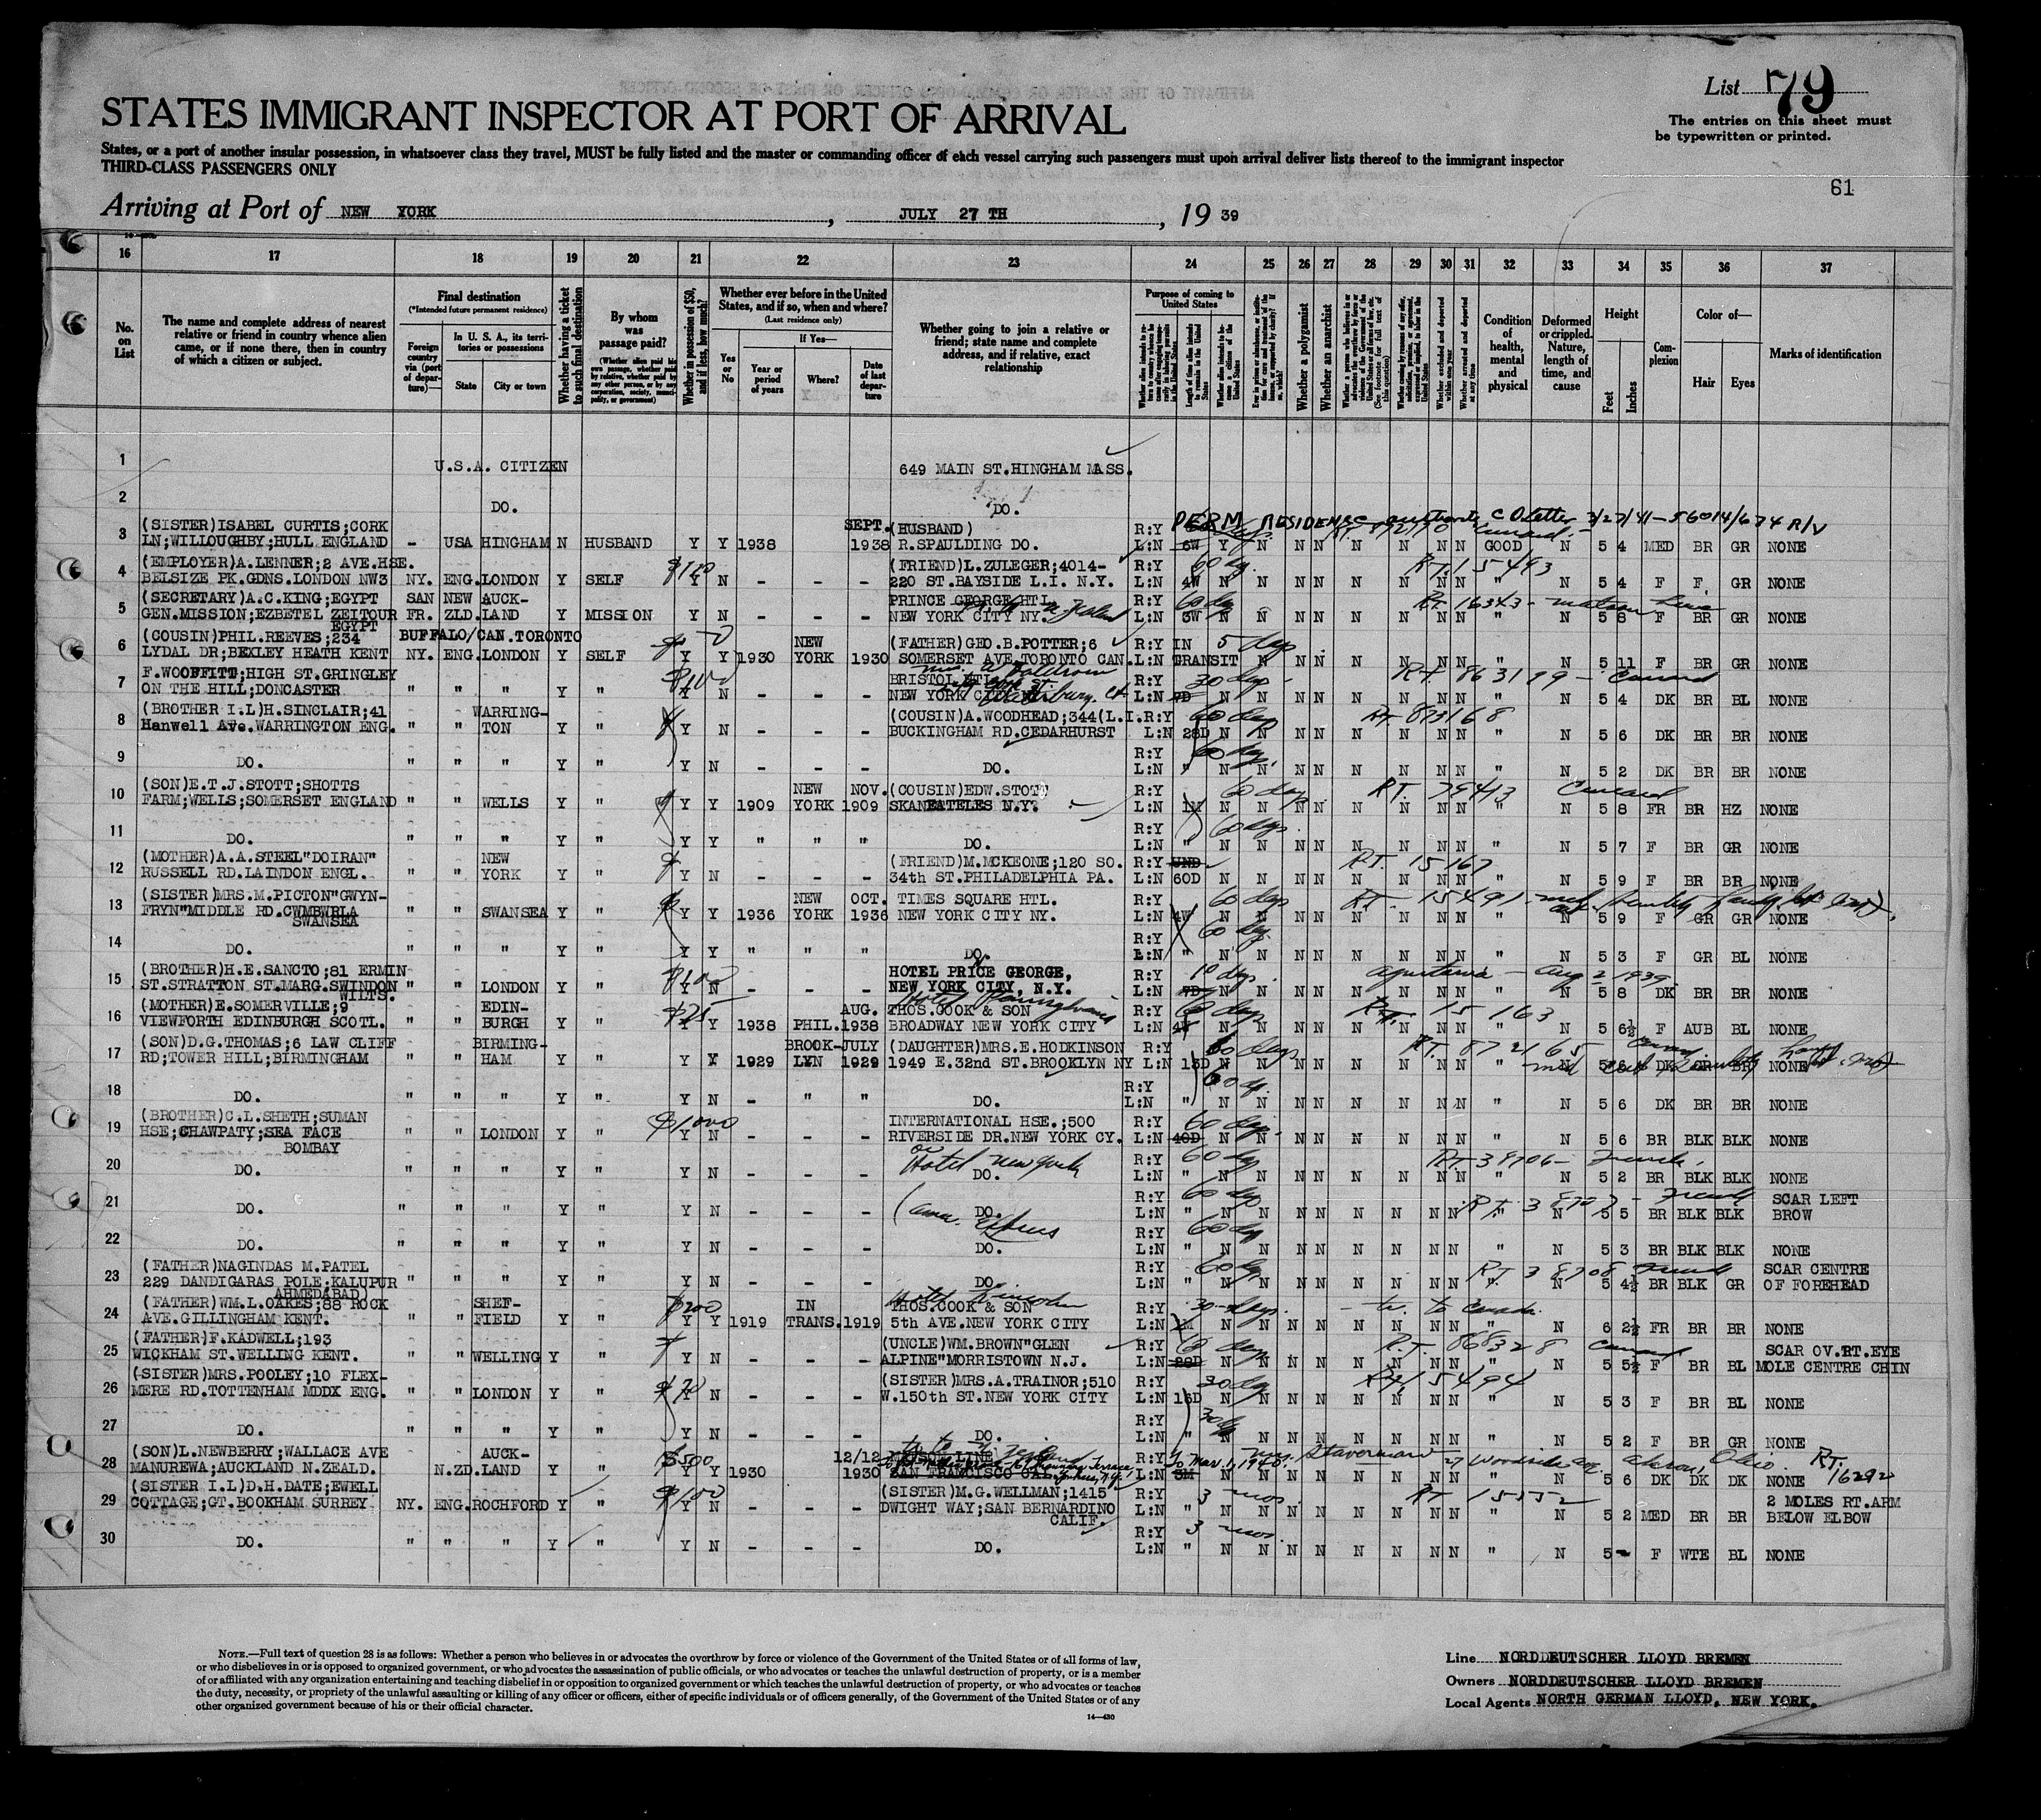 List 79
STATES IMMIGRANT INSPECTOR AT PORT OF ARRIVAL
The entries on this sheet must
be typewritten or printed.
States, or a port of another insular possession, in whatsoever class they travel, MUST be fully listed and the master or commanding officer of each vessel carrying such passengers must upon arrival deliver lists thereof to the immigrant inspector
THIRD-CLASS PASSENGERS ONLY
61
Arriving at Port of NEW YORK, JULY 27 TH, 19 39
16 17 18 19 20 21 22 23 24 25 26 27 28 29 30 31 32 33 34 35 36 37
No. on List
The name and complete address of nearest relative or friend in country whence alien came, or if none there, then in country of which a citizen or subject.
Final destination
(*Intended future permanent residence)
Foreign country via (port of departure)—
In U. S. A., its territories or possessions
State
City or town
Whether having a ticket to such final destination
By whom was passage paid?
(Whether alien paid his own passage, whether paid by relative, whether paid by any other person, or by any corporation, society, municipality, or government)
Whether in possession of $50, and if less, how much?
Whether ever before in the United States, and if so, when and where?
(Last residence only)
Yes or No
If Yes—
Year or period of years
Where?
Date of last departure
Whether going to join a relative or friend; state name and complete address, and if relative, exact relationship
Purpose of coming to United States
Length of time alien intends to remain in the United States
Whether alien intends to become a citizen of the United States
Whether a polygamist
Whether an anarchist
Condition of health, mental and physical
Deformed or crippled. Nature, length of time, and cause
Height
Feet
Inches
Complexion
Color of—
Hair
Eyes
Marks of identification
1 U.S.A. CITIZEN 649 MAIN ST.HINGHAM MASS.
2 DO. DO.
PERM RESIDENSE CO Letter 3/27/41-56014/674 R/V
3 (SISTER)ISABEL CURTIS;CORK SEPT. (HUSBAND) R:Y
LN;WILLOUGHBY;HULL ENGLAND - USA HINGHAM N HUSBAND Y Y 1938 1938 R.SPAULDING DO. L:N 6W Y N N N N N N N GOOD N 5 4 MED BR GR NONE
4 (EMPLOYER)A.LENNER;2 AVE.HSE. $100 (FRIEND)L.ZULEGER;4014- R:Y 60 dys. RT.15493
BELSIZE PK.GDNS.LONDON NW3 NY. ENG.LONDON Y SELF Y N - - - 220 ST.BAYSIDE L.I. N.Y. L:N 4W N N N N N N N N " N 5 4 F F. GR NONE
5 (SECRETARY)A.C.KING;EGYPT SAN NEW AUCK- PRINCE GEORGE HTL. R:Y 60 dys RT 16343 - matson Line
GEN.MISSION;EZBETEL ZEITOUR FR. ZLD.LAND Y MISSION Y N - - - NEW YORK CITY NY. L:N 3W N N N N N N N N " N 5 8 F BR GR NONE
EGYPT
6 (COUSIN)PHIL.REEVES;234 BUFFALO/CAN.TORONTO NEW (FATHER)GEO.B.POTTER;6 R:Y IN 5 days
LYDAL DR;BEXLEY HEATH KENT NY. ENG.LONDON Y SELF Y Y 1930 YORK 1930 SOMERSET AVE.TORONTO CAN. L:N TRANSIT N N N N N N N " N 5 11 F BR GR NONE
7 F.WOOFFITT;HIGH ST.GRINGLEY $100 BRISTOL HTL. R:Y 30 days - RT. 863199 - Cunard
ON THE HILL;DONCASTER " " " Y " Y N - - - NEW YORK CITY L:N 7D N N N N N N N N " N 5 4 DK BR BL NONE
8 (BROTHER I.L)H.SINCLAIR;41 WARRING- (COUSIN)A.WOODHEAD;344(L.I. R:Y 60 days RT. 873168
Hanwell Ave.WARRINGTON ENG. " " TON Y " Y N - - - BUCKINGHAM RD.CEDARHURST L:N 28D N N N N N N N N " N 5 6 DK BR BR NONE
9 R:Y 60 days
DO. " " " Y " Y N - - - DO. L:N " N N N N N N N N " N 5 2 DK BR BR NONE
10 (SON)E.T.J.STOTT;SHOTTS NEW NOV. (COUSIN)EDW.STOTT R:Y 60 days RT. 79413 Cunard
FARM;WELLS;SOMERSET ENGLAND " " WELLS Y " Y Y 1909 YORK 1909 SKANEATELES N.Y. L:N 1M N N N N N N N N " N 5 8 FR BR HZ NONE
11 R:Y 60 days.
DO. " " " Y " Y Y " " " DO. L:N " N N N N N N N N " N 5 7 F BR GR NONE
12 (MOTHER)A.A.STEEL"DOIRAN" NEW (FRIEND)M.MCKEONE;120 SO. R:Y UND RT. 15167
RUSSELL RD.LAINDON ENGL. " " YORK Y " Y N - - - 34th ST.PHILADELPHIA PA. L:N 60D N N N N N N N N " N 5 9 F BR BR NONE
13 (SISTER)MRS.M.PICTON"GWYN- NEW OCT. TIMES SQUARE HTL. R:Y 60 days RT. 15491
FRYN"MIDDLE RD.CWMBWRLA " " SWANSEA Y " Y Y 1936 YORK 1936 NEW YORK CITY NY. L:N 4W N N N N N N N N " N 5 9 F GR GR NONE
SWANSEA
14 R:Y 60 days
DO. " " " Y " Y Y " " " DO. L:N " N N N N N N N N " N 5 3 F GR BL NONE
15 (BROTHER)H.E.SANCTO;81 ERMIN $100 HOTEL PRICE GEORGE, R:Y 10 days. Aug 2 1939.
ST.STRATTON ST.MARG.SWINDON " " LONDON Y " Y N - - - NEW YORK CITY, N.Y. L:N 7D N N N N N N N N " N 5 8 DK BR BR NONE
WILTS.
16 (MOTHER)E.SOMERVILLE;9 EDIN- $75 AUG. Hotel Pennsylvania THOS.COOK & SON R:Y 60 days RT. 15 163
VIEWFORTH EDINBURGH SCOTL. " " BURGH Y " Y Y 1938 PHIL. 1938 BROADWAY NEW YORK CITY L:N 4W N N N N N N N N " N 5 6½ F AUB BL NONE
17 (SON)D.G.THOMAS;6 LAW CLIFF BIRMING- BROOK- JULY (DAUGHTER)MRS.E.HODKINSON R:Y 60 days RT. 872165
RD;TOWER HILL;BIRMINGHAM " " HAM Y " Y Y 1929 LYN 1929 1949 E.32nd ST.BROOKLYN NY L:N 13D N N N N N N N N " N 5 6 DK GR BR NONE
18 R:Y 60 dys.
DO. " " " Y " Y N - " " DO. L:N " N N N N N N N N " N 5 6 DK BR BR NONE
19 (BROTHER)C.L.SHETH;SUMAN $1000 INTERNATIONAL HSE.;500 R:Y 60 days.
HSE;CHAWPATY;SEA FACE " " LONDON Y " Y N - - - RIVERSIDE DR.NEW YORK CY. L:N 40D N N N N N N N N " N 5 6 BR BLK BLK NONE
BOMBAY
20 or Hotel New York R:Y 60 dys RT 39706 - French.
DO. " " " Y " Y N - - - DO. L:N " N N N N N N N N " N 5 2 BR BLK BLK NONE
21 R:Y 60 dys RT. 38707 - French SCAR LEFT
DO. " " " Y " Y N - - - DO. L:N " N N N N N N N N " N 5 5 BR BLK BLK BROW
22 (Amer. Express R:Y 60 dys
DO. " " " Y " Y N - - - DO. L:N " N N N N N N N N " N 5 3 BR BLK BLK NONE
23 (FATHER)NAGINDAS M.PATEL R:Y 60 dys. RT 38708 French SCAR CENTRE
229 DANDIGARAS POLE;KALUPUR " " " Y " Y N - - - DO. L:N " N N N N N N N N " N 5 4½ BR BLK GR OF FOREHEAD
AHMEDABAD)
24 (FATHER)WM.L.OAKES;88 ROCK SHEF- $200 IN Hotel Lincoln THOS.COOK & SON R:Y 30 days. - tr. to Canada.
AVE.GILLINGHAM KENT. " " FIELD Y " Y Y 1919 TRANS. 1919 5th AVE.NEW YORK CITY L:N 1M N N N N N N N N " N 6 2½ FR BR BR NONE
25 (FATHER)F.KADWELL;193 (UNCLE)WM.BROWN"GLEN R:Y 60 days RT. 868328 Cunard SCAR OV.RT.EYE
WICKHAM ST.WELLING KENT. " " WELLING Y " Y N - - - ALPINE"MORRISTOWN N.J. L:N 28D N N N N N N N N " N 5 5½ F BR BL MOLE CENTRE CHIN
26 (SISTER)MRS.POOLEY;10 FLEX- $70 (SISTER)MRS.A.TRAINOR;510 R:Y 30 dys RT. 15494
MERE RD.TOTTENHAM MDDX ENG. " " LONDON Y " Y N - - - W.150th ST.NEW YORK CITY L:N 16D N N N N N N N N " N 5 3 F BR BL NONE
27 R:Y 30 dys
DO. " " " Y " Y N - - - DO. L:N " N N N N N N N N " N 5 2 F BR GR NONE
28 (SON)L.NEWBERRY;WALLACE AVE AUCK- $500 12/12 MATSON LINE R:Y To Mar. 1, 1940. Mrs. Staverman 27 Woodside Ave Akron, Ohio. RT. 16292
MANUREWA;AUCKLAND N.ZEALD. N.ZD.LAND Y " Y Y 1930 1930 SAN FRANCISCO CAL. L:N 3M N N N N N N N N " N 5 6 DK DK DK NONE
29 (SISTER I.L)D.H.DATE;EWELL $100 (SISTER)M.G.WELLMAN;1415 R:Y 3 mos. RT 15552 2 MOLES RT.ARM
COTTAGE;GT.BOOKHAM SURREY NY. ENG.ROCHFORD Y " Y N - - - DWIGHT WAY;SAN BERNARDINO L:N " N N N N N N N N " N 5 2 MED BR BR BELOW ELBOW
CALIF.
30 R:Y 3 mos.
DO. " " " Y " Y N - - - DO. L:N " N N N N N N N N " N 5 - F WTE BL NONE
NOTE.—Full text of question 28 is as follows: Whether a person who believes in or advocates the overthrow by force or violence of the Government of the United States or of all forms of law,
or who disbelieves in or is opposed to organized government, or who advocates the assassination of public officials, or who advocates or teaches the unlawful destruction of property, or is a member
of or affiliated with any organization entertaining and teaching disbelief in or opposition to organized government or which teaches the unlawful destruction of property, or who advocates or teaches
the duty, necessity, or propriety of the unlawful assaulting or killing of any officer or officers, either of specific individuals or of officers generally, of the Government of the United States or of any
other organized government because of his or their official character.
14—430
Line NORDDEUTSCHER LLOYD BREMEN
Owners NORDDEUTSCHER LLOYD BREMEN
Local Agents NORTH GERMAN LLOYD, NEW YORK.